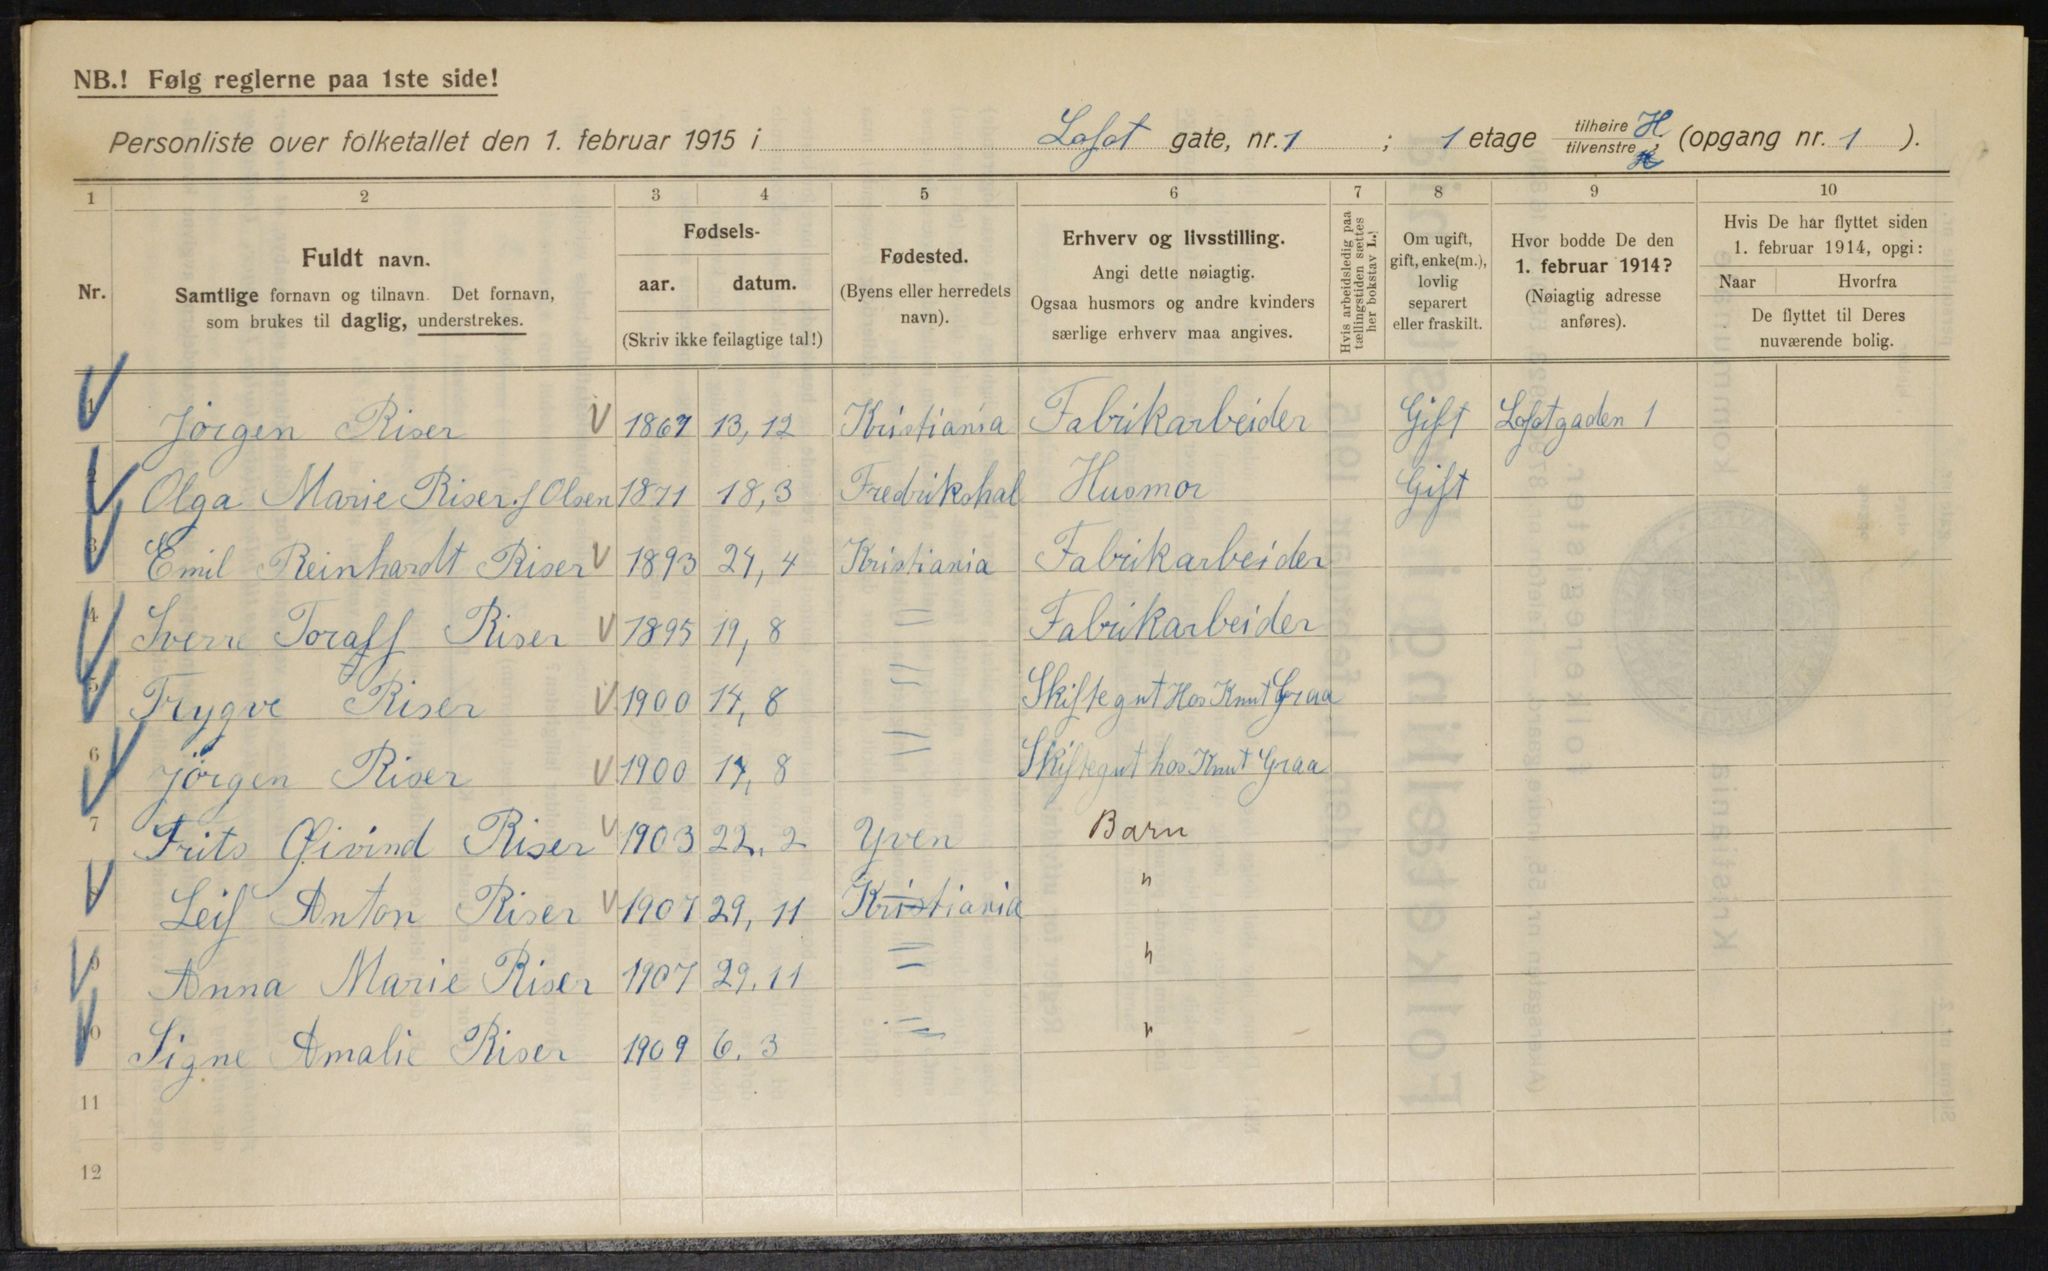 NB.! Følg reglerne paa 1ste side!
Personliste over folketallet den 1. februar 1915 i Lofot gate, nr. 1 ; 1 etage tilhøire H tilvenstre, (opgang nr. 1 ).
1 2 3 4 5 6 7 8 9 10
Nr.
Fuldt navn.
Samtlige fornavn og tilnavn. Det fornavn,
som brukes til daglig, understrekes.
Fødsels-
aar. datum.
(Skriv ikke feilagtige tal!)
Fødested.
(Byens eller herredets
navn).
Erhverv og livsstilling.
Angi dette nøiagtig.
Ogsaa husmors og andre kvinders
særlige erhverv maa angives.
Hvis arbeidsledig paa
tællingstiden sættes
her bokstav L.!
Om ugift,
gift, enke(m.),
lovlig
separert
eller fraskilt.
Hvor bodde De den
1. februar 1914?
(Nøiagtig adresse
anføres).
Hvis De har flyttet siden
1. februar 1914, opgi:
Naar Hvorfra
De flyttet til Deres
nuværende bolig.
1 Jørgen Riser 1867 13, 12 Kristiania Fabrikarbeider Gift Lofotgaden 1
2 Olga Marie Riser f Olsen 1871 18, 3 Fredrikshal Husmor Gift
3 Emil Reinhardt Riser 1893 24, 4 Kristiania Fabrikarbeider
4 Sverre Toralf Riser 1895 19, 8 " Fabrikarbeider
5 Trygve Riser 1900 14, 8 " Skiftegut Hos Knut Graa
6 Jørgen Riser 1900 14, 8 " Skiftegut hos Knut Graa
7 Frits Øivind Riser 1903 22, 2 Yven Barn
8 Leif Anton Riser 1907 29, 11 Kristiania "
9 Anna Marie Riser 1907 29. 11 " "
10 Signe Amalie Riser 1909 6. 3 " "
11
12